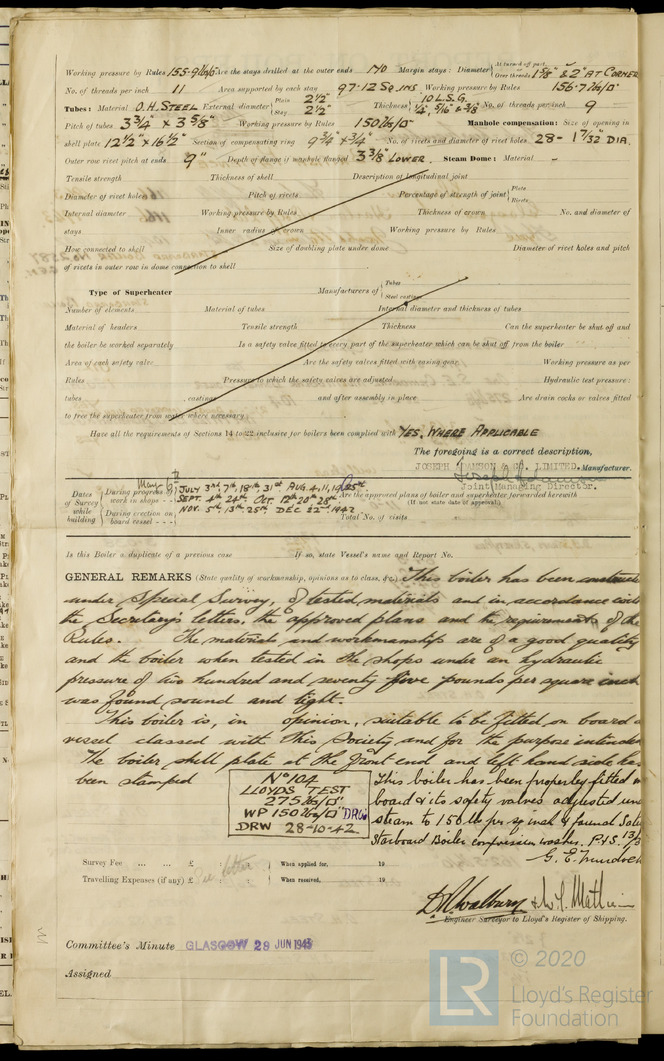 Working pressure by Rules 155·9 lbs/□" Are the stays drilled at the outer ends NO Margin stays: Diameter { At turned off part, Over threads 1⅝" & 2" AT CORNER
No. of threads per inch 11 Area supported by each stay 97·12 SQ. INS. Working pressure by Rules 156·7 lbs/□"
Tubes: Material O.H. STEEL External diameter { Plain 2½" Stay 2½" Thickness { 10 L.S.G. ¼", 5/16" & 3/8" No. of threads per inch 9
Pitch of tubes 3¾" × 3⅝" Working pressure by Rules 150 lbs/□" Manhole compensation: Size of opening in
shell plate 12½" × 16½" Section of compensating ring 9¾" × ¾" No. of rivets and diameter of rivet holes 28 - 1 7/32" DIA.
Outer row rivet pitch at ends 9" Depth of flange if manhole flanged 3⅜" LOWER. Steam Dome: Material –
Tensile strength Thickness of shell Description of longitudinal joint
Diameter of rivet holes Pitch of rivets Percentage of strength of joint { Plate Rivets
Internal diameter Working pressure by Rules Thickness of crown No. and diameter of
stays Inner radius of crown Working pressure by Rules
How connected to shell Size of doubling plate under dome Diameter of rivet holes and pitch
of rivets in outer row in dome connection to shell
Type of Superheater Manufacturers of { Tubes Steel castings
Number of elements Material of tubes Internal diameter and thickness of tubes
Material of headers Tensile strength Thickness Can the superheater be shut off and
the boiler be worked separately Is a safety valve fitted to every part of the superheater which can be shut off from the boiler
Area of each safety valve Are the safety valves fitted with easing gear Working pressure as per
Rules Pressure to which the safety valves are adjusted Hydraulic test pressure:
tubes , castings and after assembly in place Are drain cocks or valves fitted
to free the superheater from water where necessary
Have all the requirements of Sections 14 to 22 inclusive for boilers been complied with YES, WHERE APPLICABLE
The foregoing is a correct description,
JOSEPH ADAMSON & CO. LIMITED. Manufacturer.
Joint Managing Director.
Dates of Survey while building { During progress of work in shops - - May 6th JULY 3rd, 7th, 18th, 31st AUG. 4, 11, 19, 25th
SEPT. 4th 24th OCT. 12th 20th 28th
During erection on board vessel - - - NOV. 5th, 13th 25th DEC 22nd 1942
Are the approved plans of boiler and superheater forwarded herewith
(If not state date of approval)
Total No. of visits
Is this Boiler a duplicate of a previous case If so, state Vessel's name and Report No.
GENERAL REMARKS (State quality of workmanship, opinions as to class, &c.) This boiler has been
under Special Survey, of tested materials and in accordance with
the Secretary's letters, the approved plans and the requirements of the
Rules. The materials and workmanship are of a good quality
and the boiler when tested in the shops under an hydraulic
pressure of two hundred and seventy five pounds per square inch
was found sound and tight.
This boiler is, in opinion, suitable to be fitted on board a
vessel classed with this Society and for the purpose intended
The boiler shell plate at the front end and left hand side has
been stamped
No 104
LLOYDS TEST
275 lbs/□"
WP 150 lbs/□"
DRW 28-10-42
This boiler has been properly fitted on
board & its safety valves adjusted under
steam to 150 lbs per sq inch & found
Starboard Boiler compression washer. P.&S.
G. E. Murdoch
Survey Fee ... ... £ : : When applied for, 19
Travelling Expenses (if any) £ : : When received, 19
See letter
Engineer Surveyor to Lloyd's Register of Shipping.
Committee's Minute GLASGOW 29 JUN 1943
Assigned
LR © 2020
Lloyd's Register
Foundation